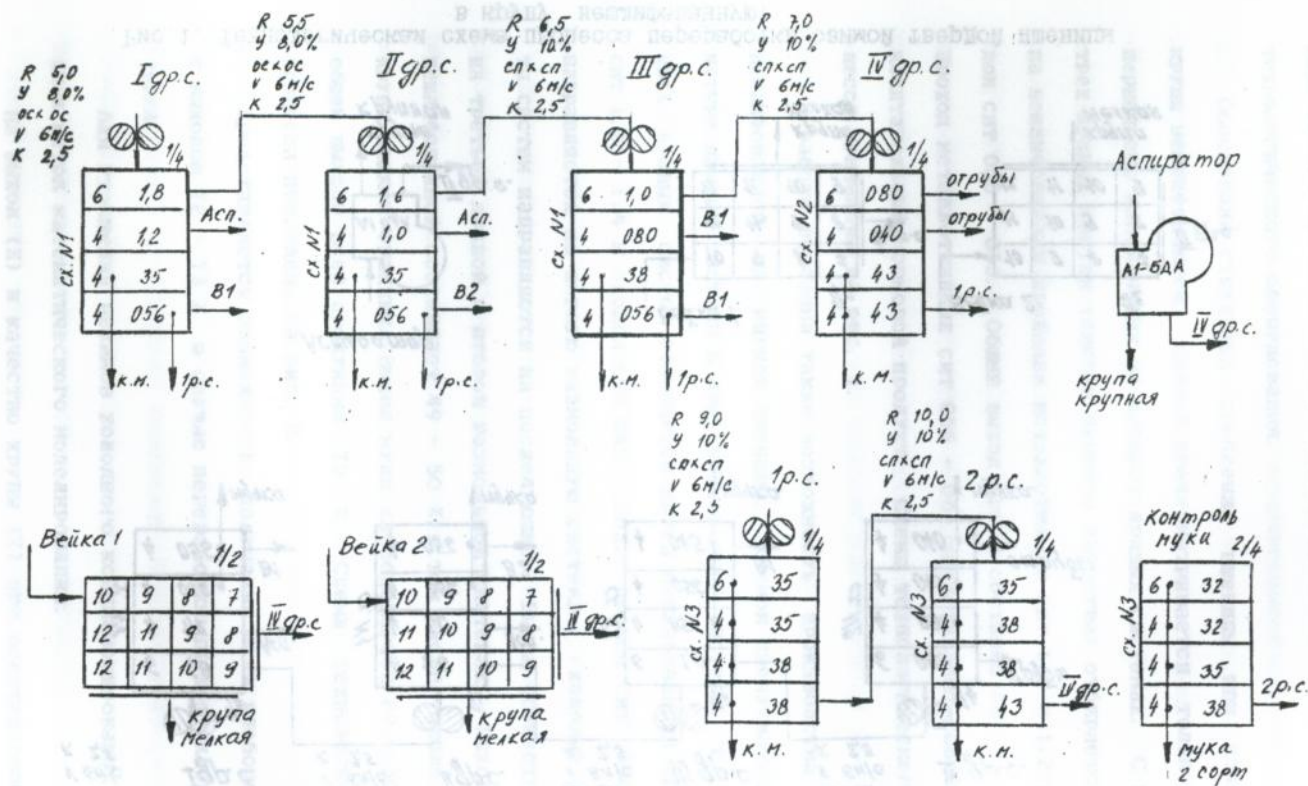 R 5,0
У 8,0%
ос х ос
V 6м/с
K 2,5
I др.с.
1/4
сх. N1
6 1,8
4 1,2
4 35
4 056
Асп.
В1
к.м.
1р.с.
R 5,5
У 8,0%
ос х ос
V 6м/с
K 2,5
II др.с.
1/4
сх. N1
6 1,6
4 1,0
4 35
4 056
Асп.
В2
к.м.
1р.с.
R 6,5
У 10%
сп х сп
V 6м/с
K 2,5
III др.с.
1/4
сх. N1
6 1,0
4 080
4 38
4 056
В1
В1
к.м.
1р.с.
R 7,0
У 10%
сп х сп
V 6м/с
K 2,5
IV др.с.
1/4
сх. N2
6 080
4 040
4 43
4 43
отрубы
отрубы
1р.с.
к.м.
Аспиратор
А1-БДА
IV др.с.
крупа
крупная
Вейка 1
1/2
10 9 8 7
12 11 9 8
12 11 10 9
IV др.с
крупа
мелкая
Вейка 2
1/2
10 9 8 7
11 10 9 8
12 11 10 9
IV др.с.
крупа
мелкая
R 9,0
У 10%
сп х сп
V 6м/с
K 2,5
1р.с.
1/4
сх. N3
6 35
4 35
4 38
4 38
к.м.
R 10,0
У 10%
сп х сп
V 6м/с
K 2,5
2р.с.
1/4
сх. N3
6 35
4 38
4 38
4 43
IV др.с.
к.м.
Контроль
муки
2/4
сх. N3
6 32
4 32
4 35
4 38
2р.с.
мука
2 сорт